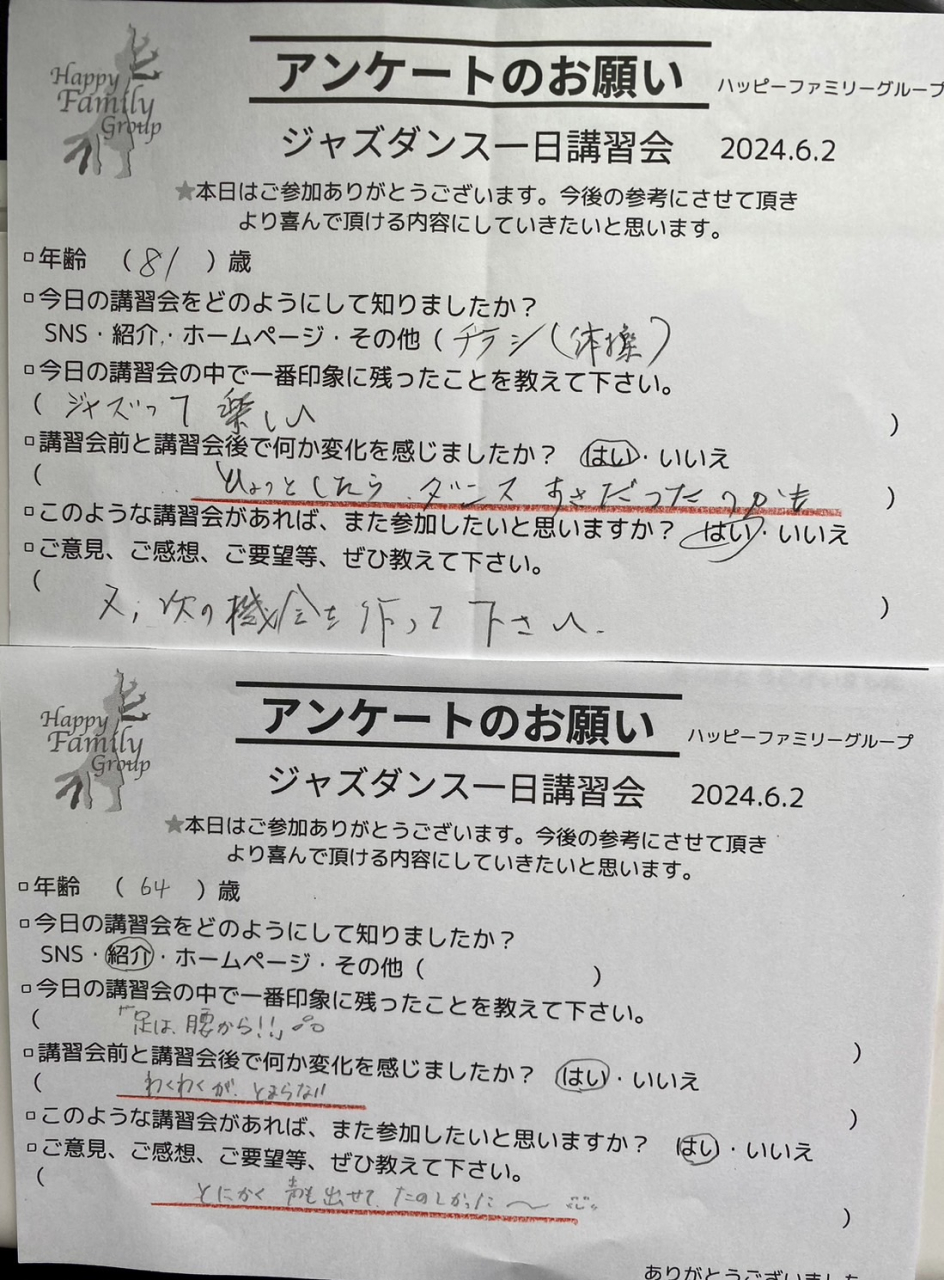 Happy
Family
Group
アンケートのお願い ハッピーファミリーグループ
ジャズダンス一日講習会 2024.6.2
★本日はご参加ありがとうございます。今後の参考にさせて頂き
より喜んで頂ける内容にしていきたいと思います。
▫年齢 (81)歳
▫今日の講習会をどのようにして知りましたか？
SNS・紹介・ホームページ・その他(チラシ(体操)
▫今日の講習会の中で一番印象に残ったことを教えて下さい。
(ジャズって楽しい)
▫講習会前と講習会後で何か変化を感じましたか？ はい・いいえ
(ひょっとしたら、ダンスすきだったのかも)
▫このような講習会があれば、また参加したいと思いますか？ はい・いいえ
▫ご意見、ご感想、ご要望等、ぜひ教えて下さい。
(又、次の機会を作って下さい。)
Happy
Family
Group
アンケートのお願い ハッピーファミリーグループ
ジャズダンス一日講習会 2024.6.2
★本日はご参加ありがとうございます。今後の参考にさせて頂き
より喜んで頂ける内容にしていきたいと思います。
▫年齢 (64)歳
▫今日の講習会をどのようにして知りましたか？
SNS・紹介・ホームページ・その他( )
▫今日の講習会の中で一番印象に残ったことを教えて下さい。
(「足は、腰から!!」)
▫講習会前と講習会後で何か変化を感じましたか？ はい・いいえ
(わくわくが、とまらない!!)
▫このような講習会があれば、また参加したいと思いますか？ はい・いいえ
▫ご意見、ご感想、ご要望等、ぜひ教えて下さい。
(とにかく 声も出せて、たのしかった〜)
ありがとうございました